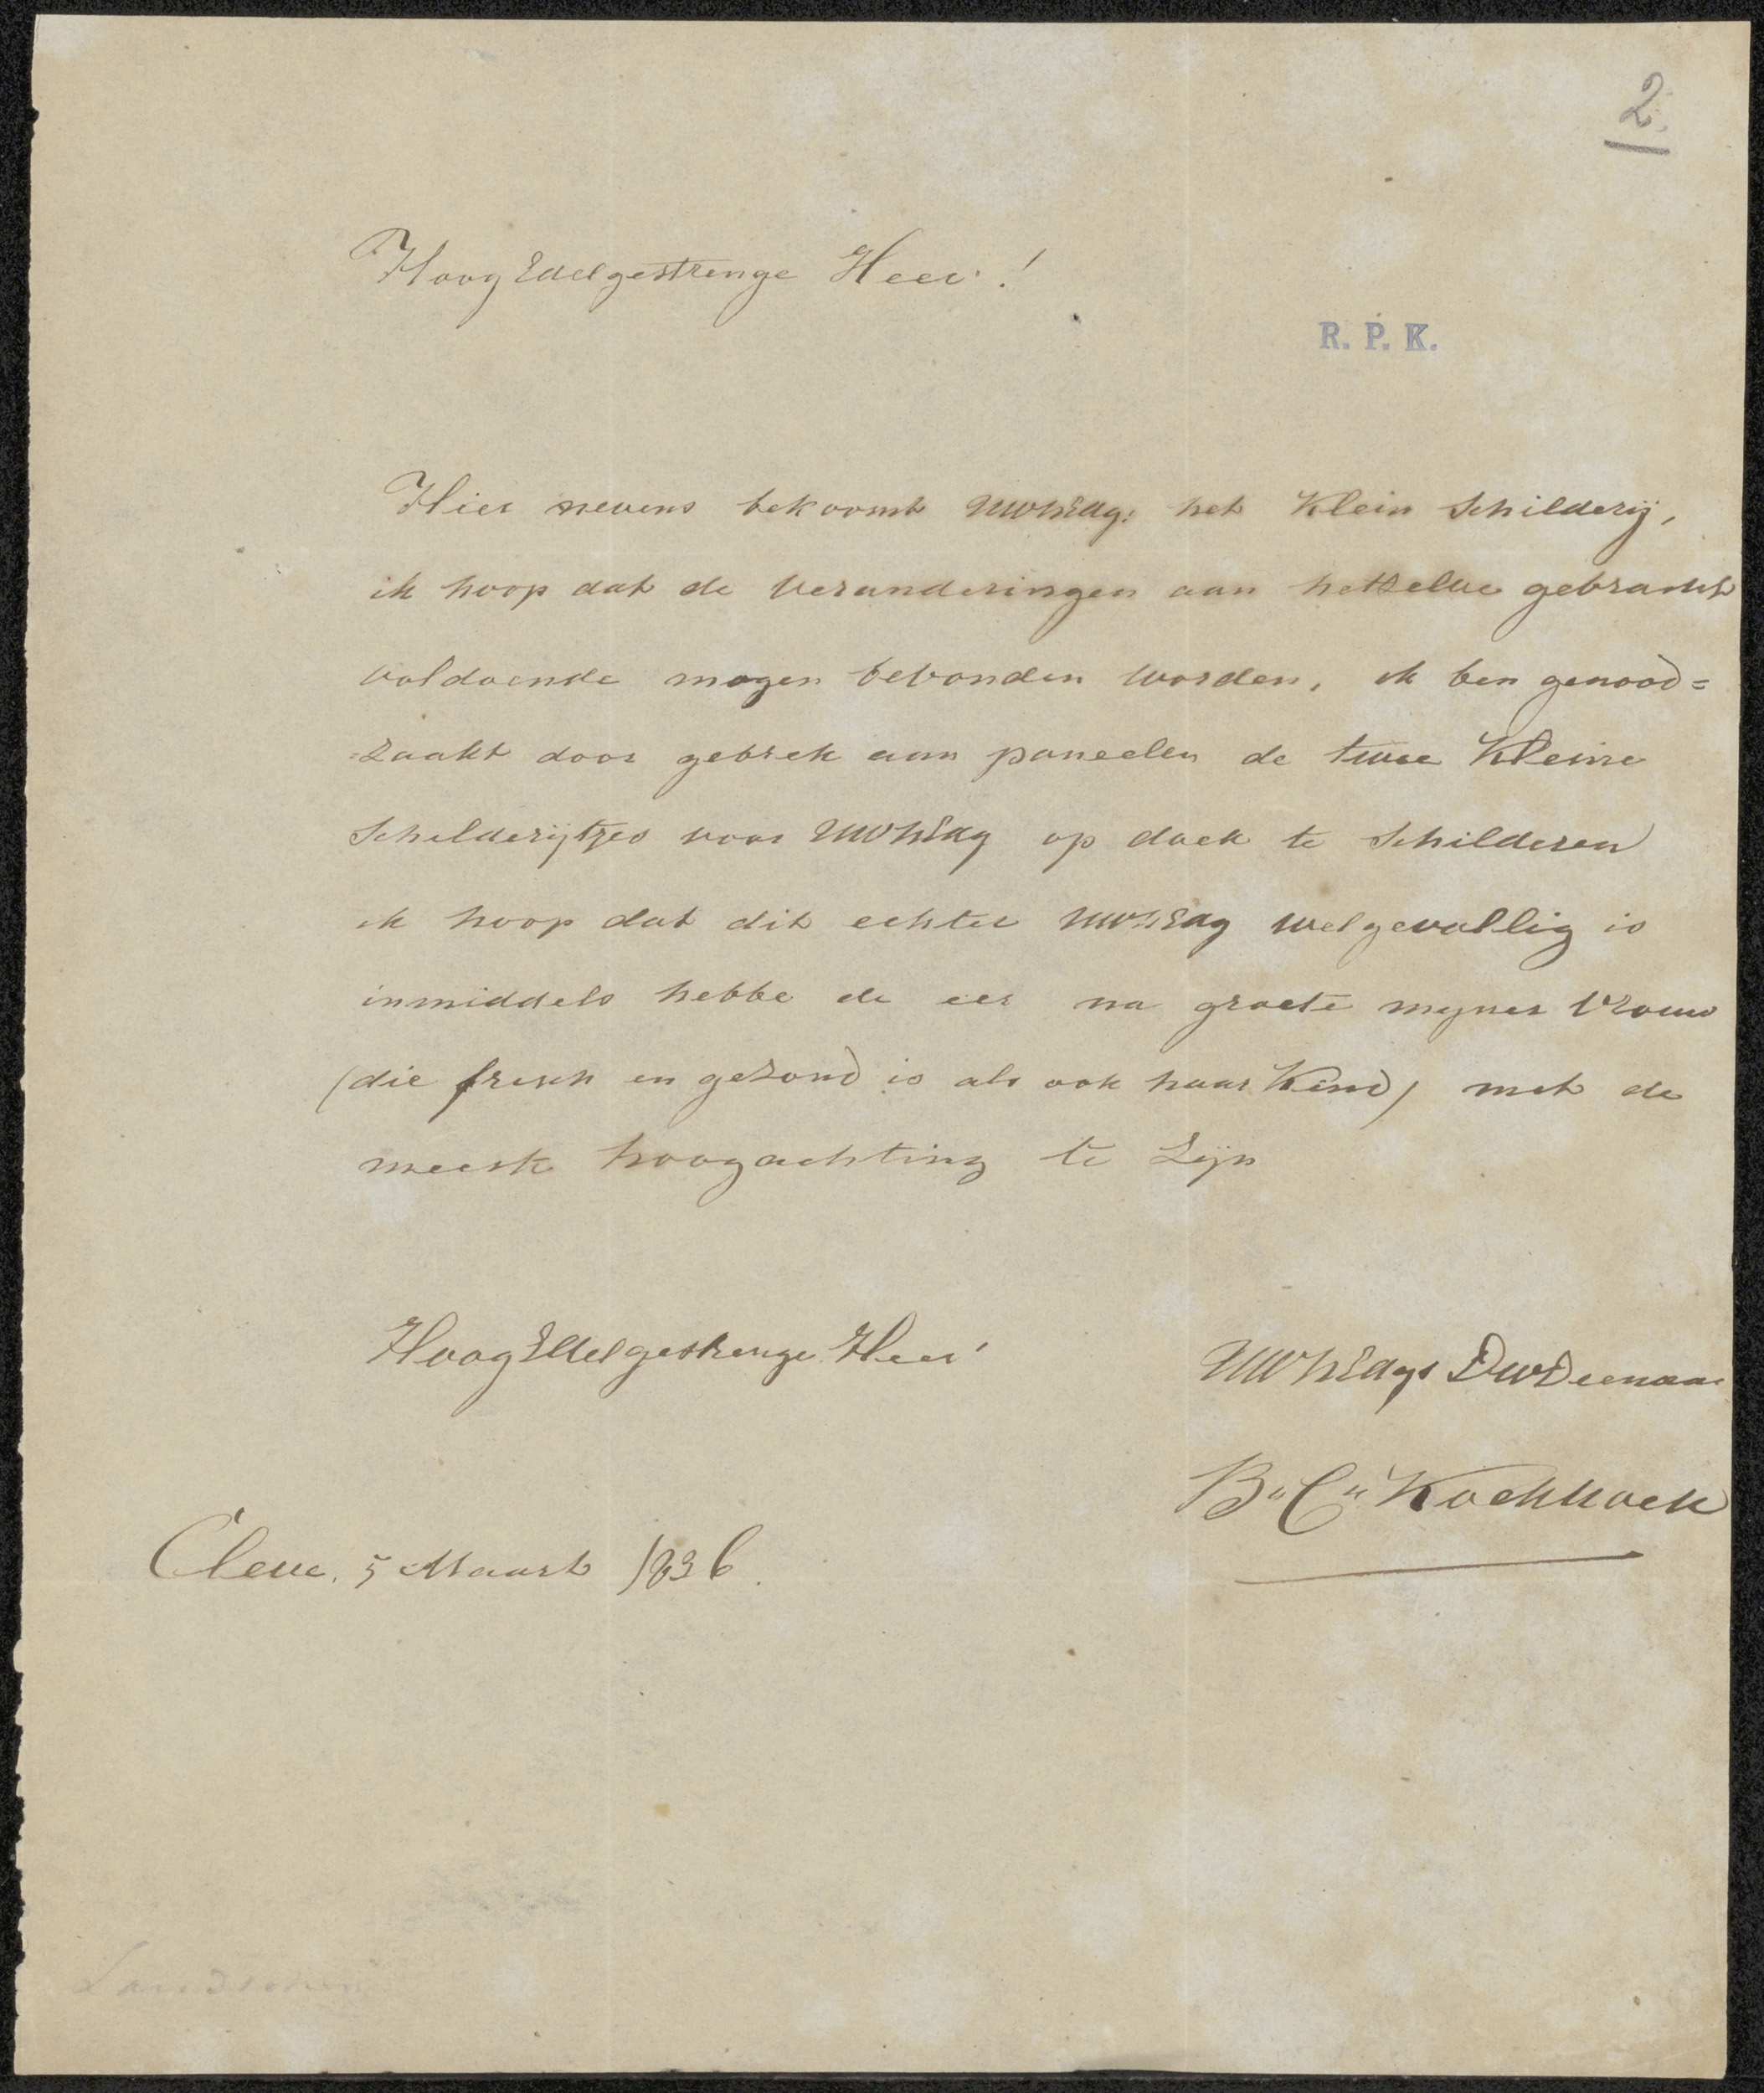 2.
HoogEdelgestrenge Heer!
R. P. K.
Hier nevens bekoomt UWHEdg: het Klein Schilderij,
ik hoop dat de veranderingen aan hetzelve gebracht
voldoende mogen bevonden worden, ik ben genood=
=zaakt door gebrek aan paneelen de twee Kleine
Schilderijtjes voor UWHEdg op doek te Schilderen
ik hoop dat dit echter UWHEdg welgevallig is
inmiddels hebbe de eer na groete mijner Vrouw
(die frisch en gezond is als ook haar Kind) met de
meeste hoogachting te Zijn
HoogEdelgestrenge Heer
UWHEdgs DwDienaar
B. C. Koekkoek
Cleve, 5 Maart 1836.